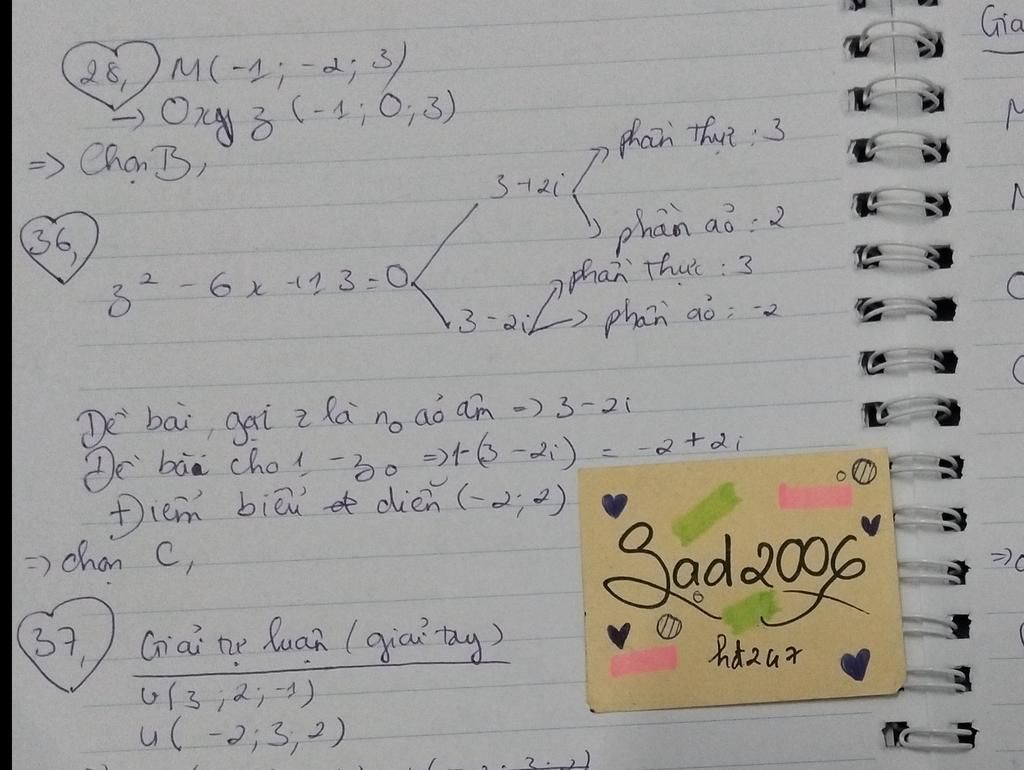 28, M(-1; -2; 3)
→ Oxyz (-1; 0; 3)
=> Chọn B,
36,
z² - 6x + 13 = 0
3+2i
phần thực : 3
phần ảo : 2
3-2i
phần thực : 3
phần ảo : -2
Đề bài, gọi z là n₀ ảo âm => 3-2i
Đề bài cho 1 - z₀ => 1-(3-2i) = -2+2i
Điểm biểu diễn (-2; 2)
=> chọn C,
37, Giải tự luận (giải tay)
v(3; 2; -1)
u(-2; 3; 2)
Sad2006
hđ247
Gia